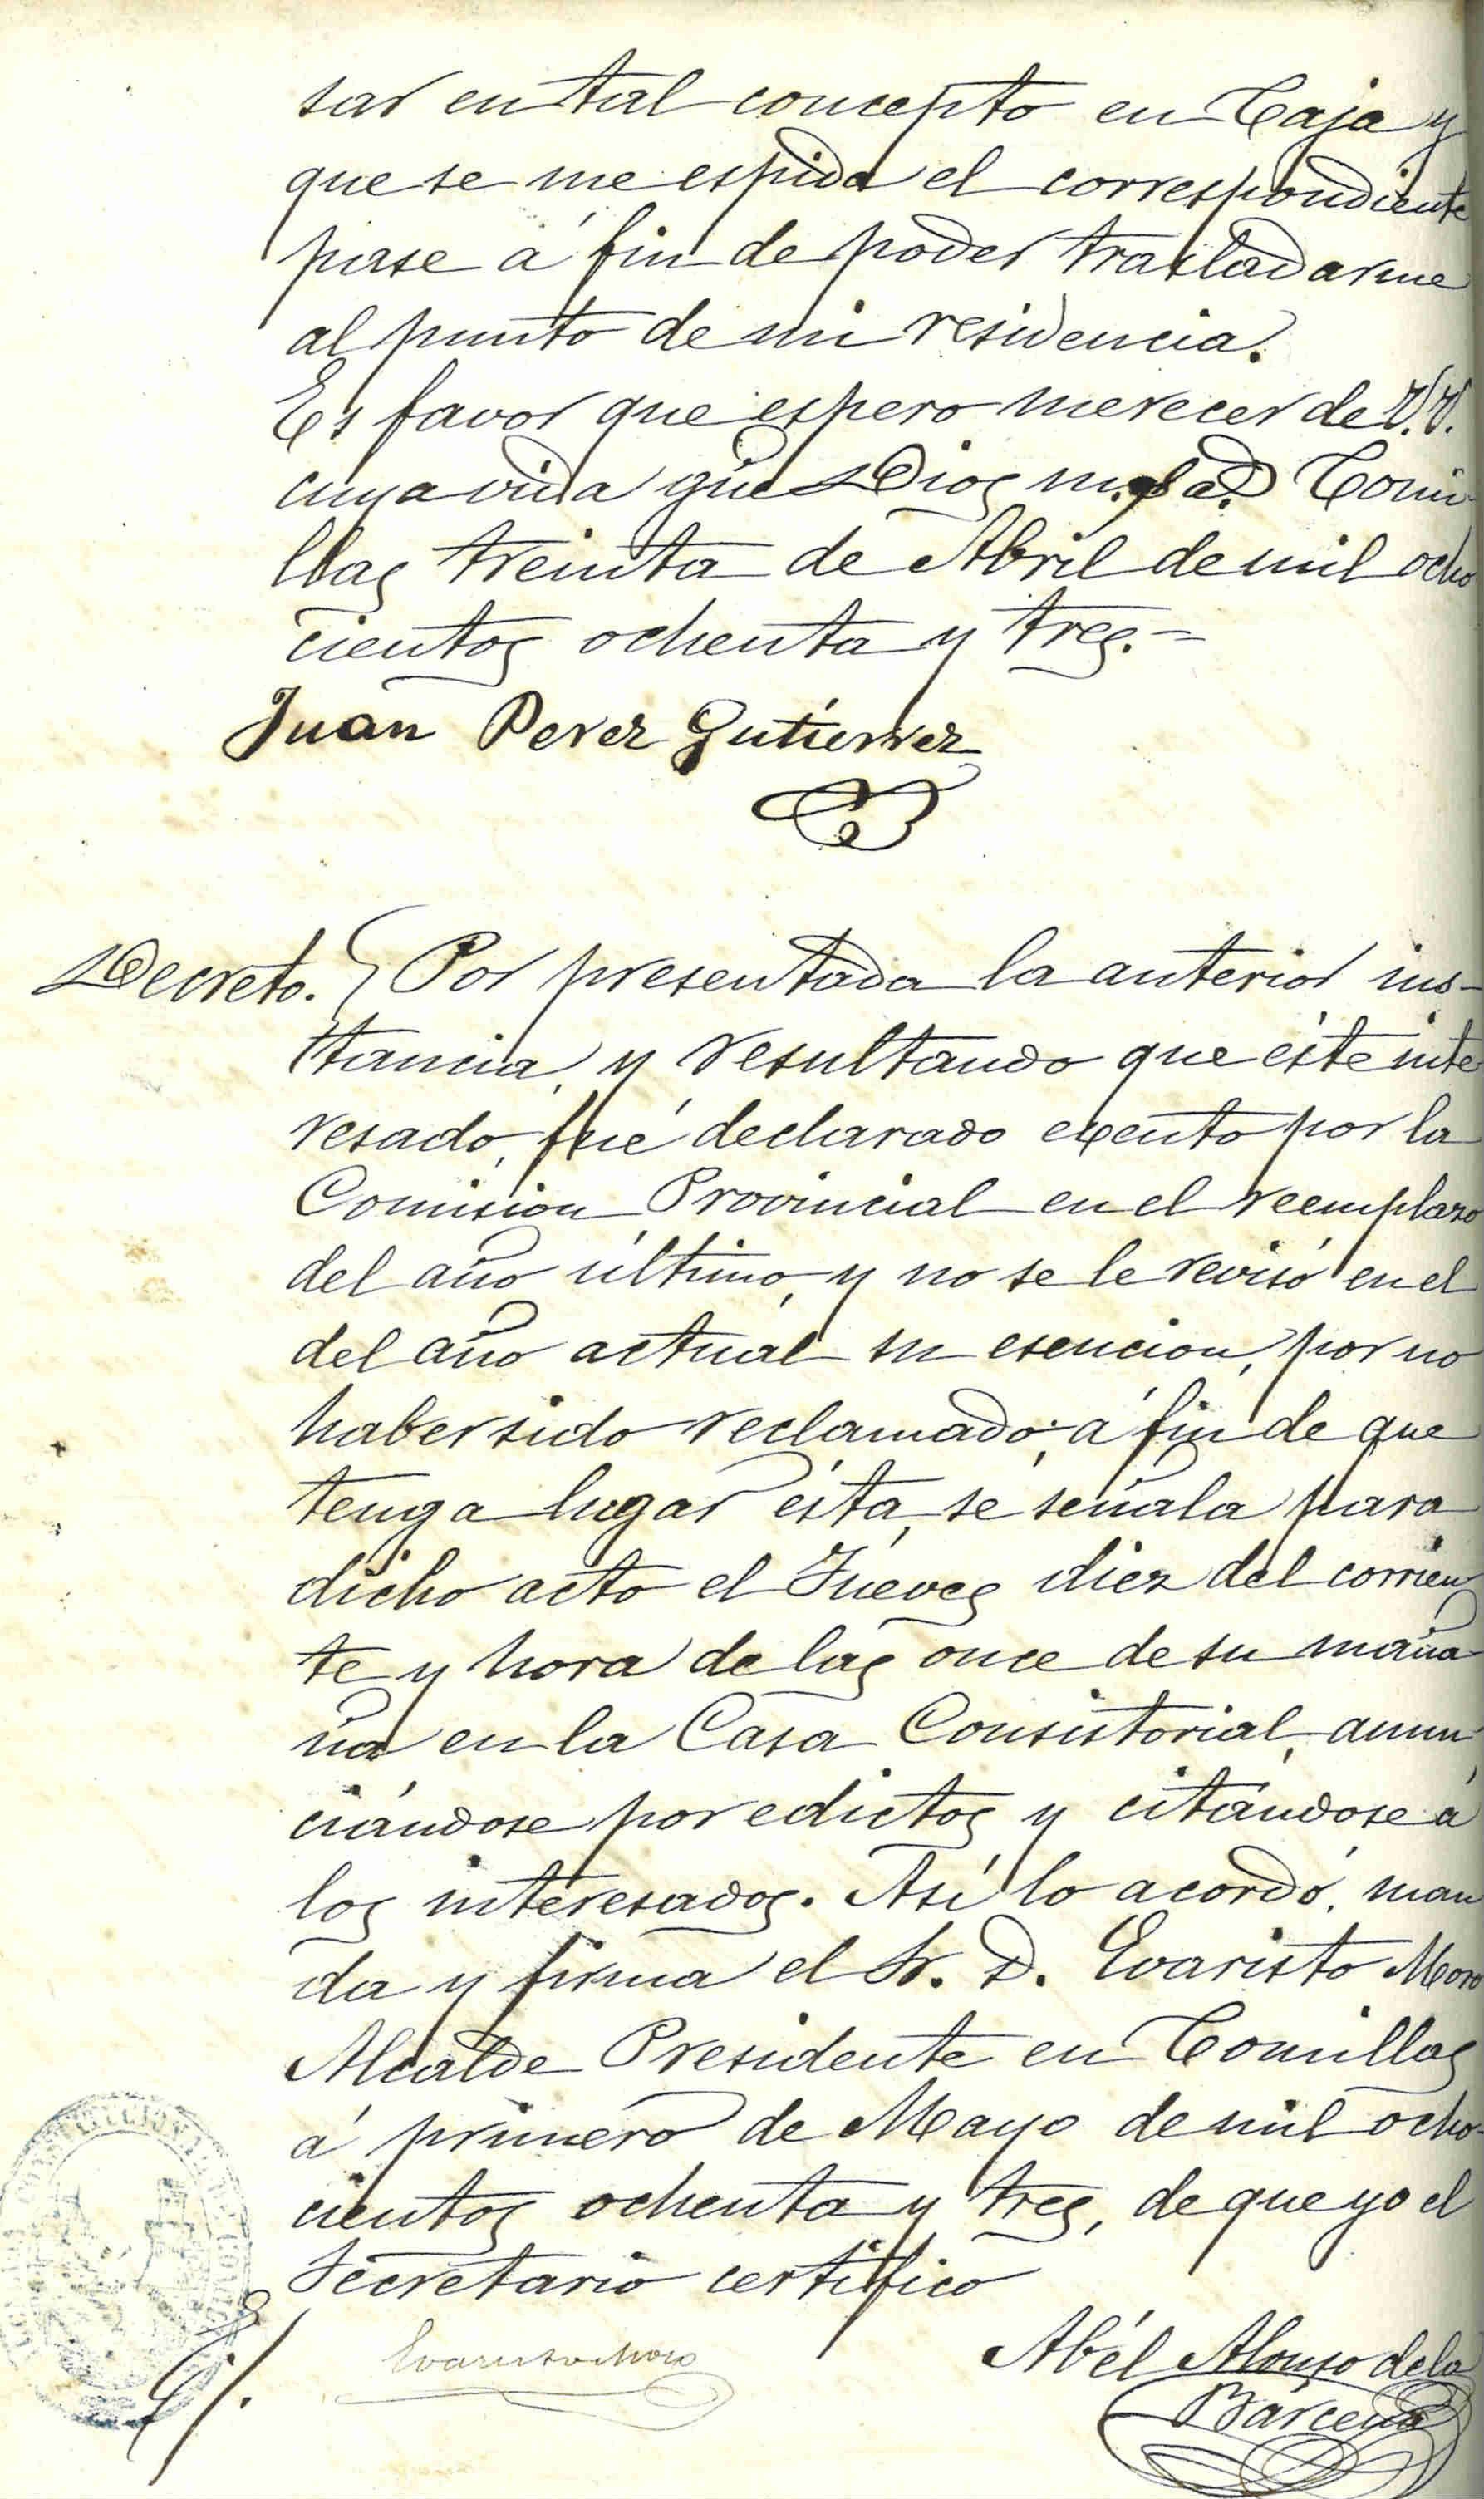 sar en tal concepto en Caja y
que se me espida el correspondiente
pase á fin de poder trasladarme
al punto de mi residencia.
Es favor que espero merecer de V.V.
cuya vida gue Dios m. a. Comi
llas treinta de Abril de mil ocho
cientos ochenta y tres.=
Juan Perez Gutierrez
Decreto. { Por presentada la anterior ins-
tancia, y resultando que éste inte
resado, fué declarado exento por la
Comision Provincial en el reemplazo
del año último, y no se le revisó en el
del año actual su esencion, por no
haber sido reclamado; á fin de que
tenga lugar ésta, se señala para
dicho acto el Jueves diez del corrien
te y hora de las once de su maña
na en la Casa Consistorial, anun
ciándose por edictos y citándose á
los interesados. Así lo acordó, man
da y firma el Sr. D. Evaristo Moro
Alcalde Presidente en Comillas
á primero de Mayo de mil ocho-
cientos ochenta y tres, de que yo el
Secretario certifico
Evaristo Moro
Abél Alonso de la
Bárcena